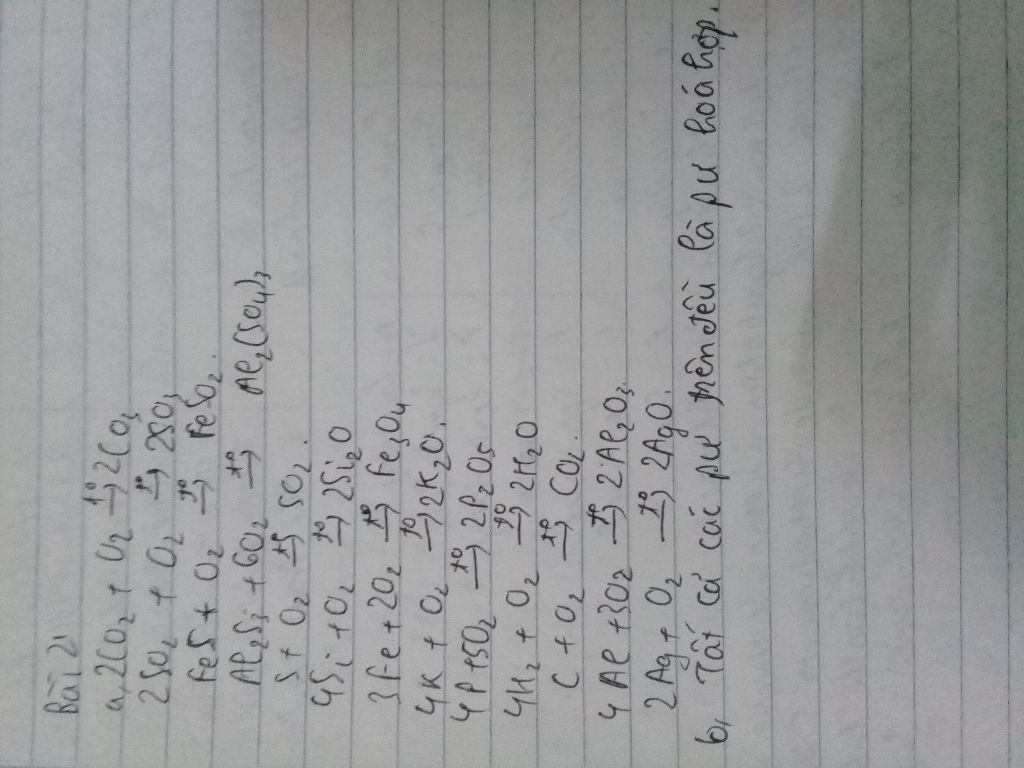 Bài 2,
a, 2CO₂ + O₂ —t°→ 2CO₃
2SO₂ + O₂ —t°→ 2SO₃
FeS + O₂ —t°→ FeSO₂.
Al₂Si + 6O₂ —t°→ Al₂(SO₄)₃
S + O₂ —t°→ SO₂.
4Si + O₂ —t°→ 2Si₂O
3Fe + 2O₂ —t°→ Fe₃O₄
4K + O₂ —t°→ 2K₂O.
4P + 5O₂ —t°→ 2P₂O₅
4H₂ + O₂ —t°→ 2H₂O
C + O₂ —t°→ CO₂.
4Al + 3O₂ —t°→ 2Al₂O₃
2Ag + O₂ —t°→ 2AgO.
b, Tất cả các pư trên đều là pư hoá hợp.